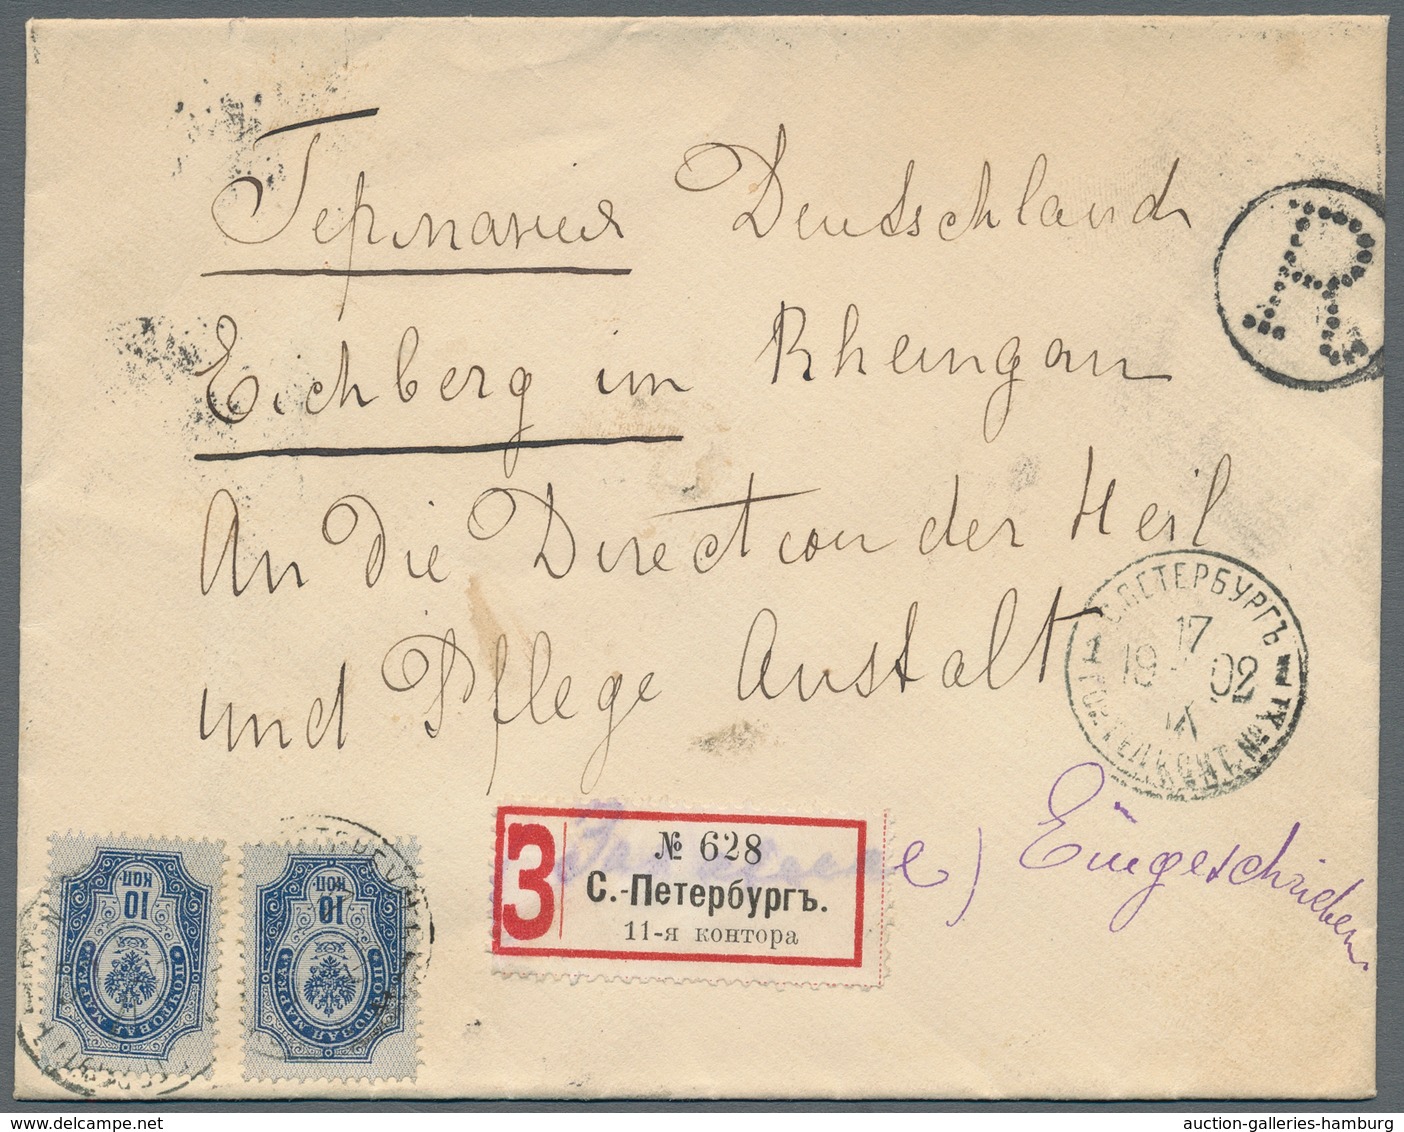 Германия Deutschland
R
Eichberg im Rheingau
An die Direction der Heil
und Pflege Anstalt
С.ПЕТЕРБУРГЪ
17
19 02
IX
3
№ 628
С.-Петербургъ.
11-я контора
) Eingeschrieben
10 КОП
ПОЧТОВАЯ МАРКА
10 КОП
ПОЧТОВАЯ МАРКА
auction-galleries-hamburg